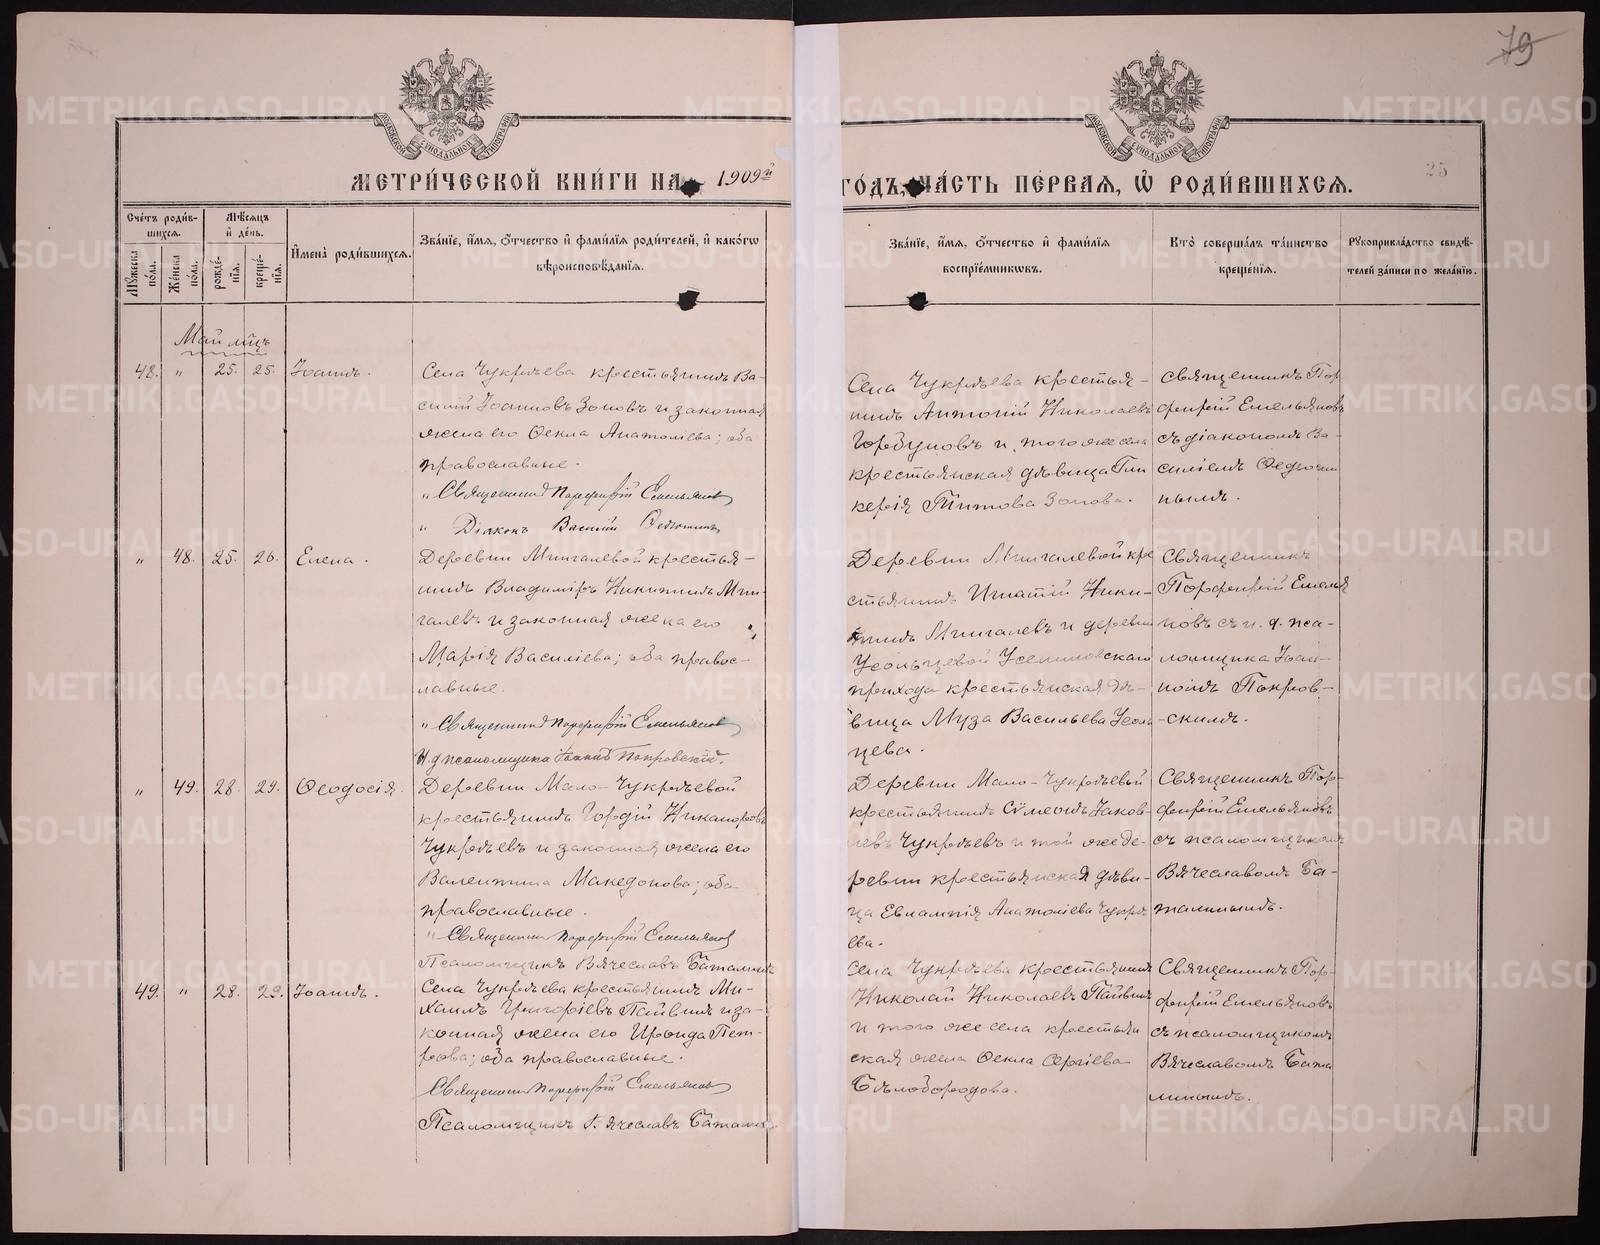 79
25
МОСКОВСКОЙ СѴНОДАЛЬНОЙ ТИПОГРАФІИ
МОСКОВСКОЙ СѴНОДАЛЬНОЙ ТИПОГРАФІИ
МЕТРИ́ЧЕСКОЙ КНИ́ГИ НА 1909й ГО́ДЪ, ЧА́СТЬ ПЕ́РВАѦ, Ѡ҆ РОДИ́ВШИХСѦ.
Сче́тъ роди́в-
шихсѧ.
Мѣ́сѧцъ
и҆ де́нь.
Мꙋ́жеска по́ла.
Же́нска по́ла.
рожде́-
нїѧ.
креще́-
нїѧ.
И҆мена̀ роди́вшихсѧ.
Зва́нїе, и҆́мѧ, ѻ҆́тчество и҆ фами́лїѧ роди́телей, и҆ како́гѡ
вѣроисповѣ́данїѧ.
Зва́нїе, и҆́мѧ, ѻ҆́тчество и҆ фами́лїѧ
воспрїе́мникѡвъ.
Кто̀ соверша́лъ та́инство
креще́нїѧ.
Рꙋкоприкла́дство свидѣ́-
телей за́писи по жела́нїю.
Май мц̃ъ
48. " 25. 25. Іоаннъ.
Села Чукрѣева крестьянинъ Ва-
силій Іоанновъ Зоновъ и законная
жена его Ѳекла Анатоліева; оба
православные.
" Священникъ Порфирій Емельяновъ
" Діаконъ Василій Ѳедюшинъ
Села Чукрѣева крестья-
нинъ Антоній Николаевъ
Горбуновъ и того же села
крестьянская дѣвица Гли
керія Титова Зонова.
Священникъ Пор
фирій Емельяновъ
съ діакономъ Ва-
силіемъ Ѳедюши
нымъ.
" 48. 25. 26. Елена.
Деревни Мингалевой крестья-
нинъ Владиміръ Никитинъ Мин
галевъ и законная жена его
Марія Василіева; оба правос-
лавные.
" Священникъ Порфирій Емельяновъ
И. д псаломщика Іоаннъ Покровскій.
Деревни Мингалевой кре
стьянинъ Игнатій Ники-
тинъ Мингалевъ и деревни
Усольцевой Усениновскаго
прихода крестьянская дѣ-
вица Муза Васильева Усоль
цева.
Священникъ
Порфирій Емелья
новъ съ и. д. пса-
ломщика Іоан-
номъ Покров-
скимъ.
" 49. 28. 29. Ѳеодосія.
Деревни Мало-Чукрѣевой
крестьянинъ Гордій Никаноровъ
Чукрѣевъ и законная жена его
Валентина Македонова; оба
православные.
" Священникъ Порфирій Емельяновъ
Псаломщикъ Вячеславъ Баталинъ
Деревни Мало-Чукрѣевой
крестьянинъ Сѵмеонъ Іаков-
левъ Чукрѣевъ и той же де-
ревни крестьянская дѣви-
ца Евлампія Анатоліева Чукрѣ
ева.
Священникъ Пор-
фирій Емельяновъ
съ псаломщикомъ
Вячеславомъ Ба-
талинымъ.
49. " 28. 29. Іоаннъ.
Села Чукрѣева крестьянинъ Ми-
хаилъ Григоріевъ Пайвинъ и за-
конная жена его Ираида Пет-
рова; оба православные.
Священникъ Порфирій Емельяновъ
Псаломщикъ Вячеславъ Баталинъ
Села Чукрѣева крестьянинъ
Николай Николаевъ Пайвинъ
и того же села крестьян
ская жена Ѳекла Сергіева
Бѣлобородова.
Священникъ Пор-
фирій Емельяновъ
съ псаломщикомъ
Вячеславомъ Бата
линымъ.
METRIKI.GASO-URAL.RU